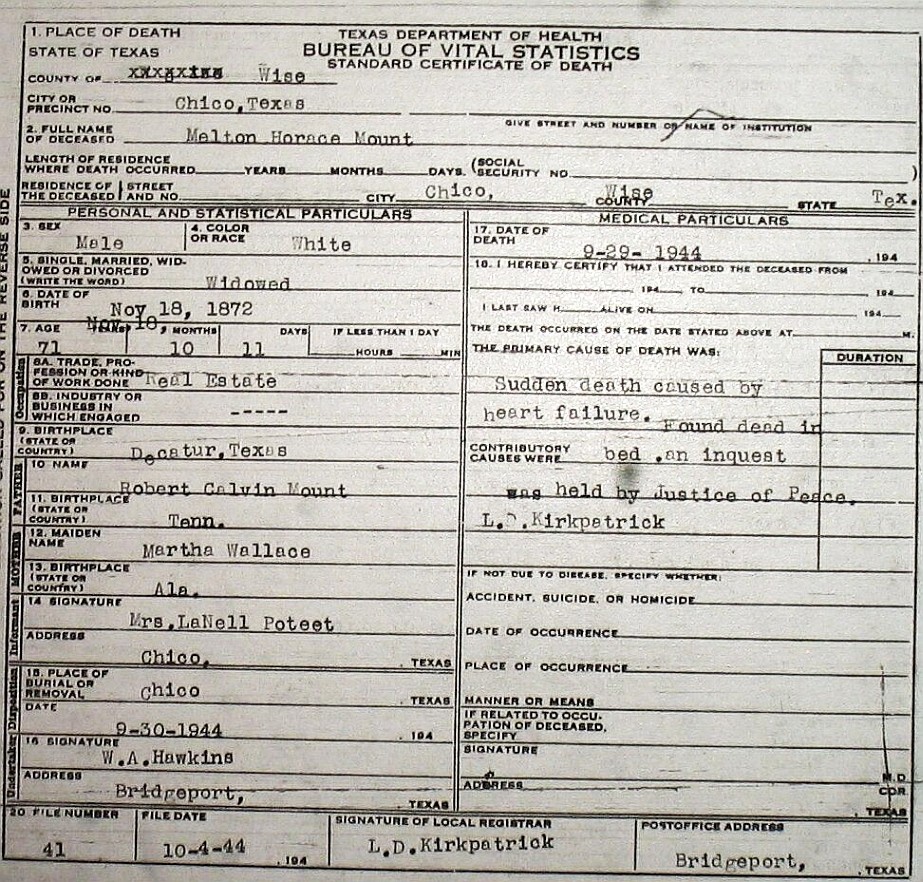 1. PLACE OF DEATH
STATE OF TEXAS
TEXAS DEPARTMENT OF HEALTH
BUREAU OF VITAL STATISTICS
STANDARD CERTIFICATE OF DEATH
COUNTY OF Wise
CITY OR PRECINCT NO. Chico,Texas
GIVE STREET AND NUMBER OR NAME OF INSTITUTION
2. FULL NAME OF DECEASED Melton Horace Mount
LENGTH OF RESIDENCE WHERE DEATH OCCURRED YEARS MONTHS DAYS. (SOCIAL SECURITY NO. )
RESIDENCE OF THE DECEASED STREET AND NO. CITY Chico, Wise COUNTY STATE Tex.
PERSONAL AND STATISTICAL PARTICULARS
3. SEX Male
4. COLOR OR RACE White
5. SINGLE, MARRIED, WIDOWED OR DIVORCED (WRITE THE WORD) Widowed
6. DATE OF BIRTH Nov 18, 1872
Nov 18,
7. AGE YEARS MONTHS DAYS IF LESS THAN 1 DAY
71 10 11 HOURS MIN
Occupation
8A. TRADE, PROFESSION OR KIND OF WORK DONE Real Estate
8B. INDUSTRY OR BUSINESS IN WHICH ENGAGED -----
9. BIRTHPLACE (STATE OR COUNTRY) Decatur,Texas
FATHER
10 NAME Robert Calvin Mount
11. BIRTHPLACE (STATE OR COUNTRY) Tenn.
MOTHER
12. MAIDEN NAME Martha Wallace
13. BIRTHPLACE (STATE OR COUNTRY) Ala.
Informant
14 SIGNATURE Mrs.LaNell Poteet
ADDRESS Chico, , TEXAS
Disposition
15. PLACE OF BURIAL OR REMOVAL Chico , TEXAS
DATE 9-30-1944 , 194
Undertaker
16 SIGNATURE W.A.Hawkins
ADDRESS Bridgeport, , TEXAS
MEDICAL PARTICULARS
17. DATE OF DEATH 9-29- 1944 , 194
18. I HEREBY CERTIFY THAT I ATTENDED THE DECEASED FROM
194 TO 194
I LAST SAW H ALIVE ON 194
THE DEATH OCCURRED ON THE DATE STATED ABOVE AT M.
THE PRIMARY CAUSE OF DEATH WAS:
DURATION
Sudden death caused by
heart failure. Found dead in
CONTRIBUTORY CAUSES WERE bed .an inquest
was held by Justice of Peace.
L.D.Kirkpatrick
IF NOT DUE TO DISEASE, SPECIFY WHETHER:
ACCIDENT, SUICIDE, OR HOMICIDE
DATE OF OCCURRENCE
PLACE OF OCCURRENCE
MANNER OR MEANS
IF RELATED TO OCCUPATION OF DECEASED, SPECIFY
SIGNATURE
M.D.
COR.
ADDRESS , TEXAS
20 FILE NUMBER FILE DATE SIGNATURE OF LOCAL REGISTRAR POSTOFFICE ADDRESS
41 10-4-44 , 194 L.D.Kirkpatrick Bridgeport, , TEXAS
FOR ON THE REVERSE SIDE